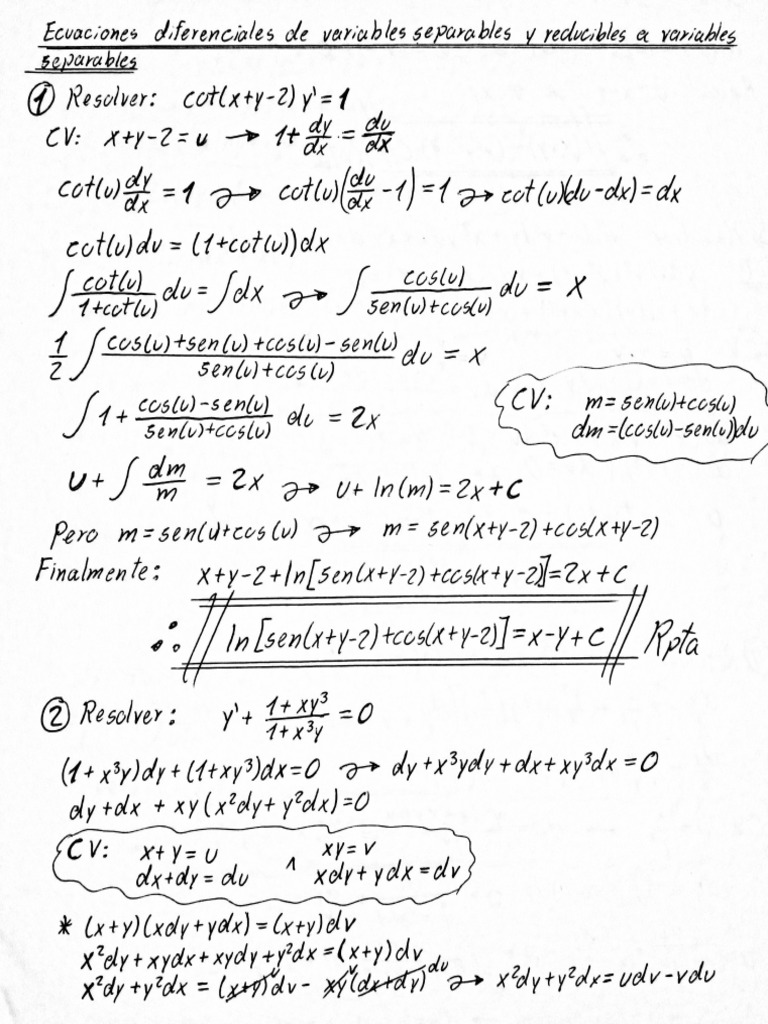 Ecuaciones diferenciales de variables separables y reducibles a variables
separables
① Resolver: cot(x+y-2) y' = 1
CV: x+y-2 = u → 1+dy/dx = du/dx
cot(u) dy/dx = 1 → cot(u)(du/dx - 1) = 1 → cot(u)(du-dx) = dx
cot(u)du = (1+cot(u))dx
∫ cot(u)/(1+cot(u)) du = ∫dx → ∫ cos(u)/(sen(u)+cos(u)) du = x
1/2 ∫ (cos(u)+sen(u)+cos(u)-sen(u))/(sen(u)+cos(u)) du = x
∫ 1 + (cos(u)-sen(u))/(sen(u)+cos(u)) du = 2x
CV: m = sen(u)+cos(u)
dm = (cos(u)-sen(u))du
u + ∫ dm/m = 2x → u + ln(m) = 2x + C
Pero m = sen(u)+cos(u) → m = sen(x+y-2)+cos(x+y-2)
Finalmente: x+y-2+ln[sen(x+y-2)+cos(x+y-2)] = 2x+C
∴ ln[sen(x+y-2)+cos(x+y-2)] = x-y+C Rpta
② Resolver: y' + (1+xy³)/(1+x³y) = 0
(1+x³y)dy+(1+xy³)dx=0 → dy+x³ydy+dx+xy³dx=0
dy+dx + xy(x²dy+y²dx)=0
CV: x+y=u ∧ xy=v
dx+dy=du xdy+ydx=dv
* (x+y)(xdy+ydx)=(x+y)dv
x²dy+xydx+xydy+y²dx=(x+y)dv
x²dy+y²dx = (x+y)u dv - xy v (dx+dy) du → x²dy+y²dx=udv-vdu